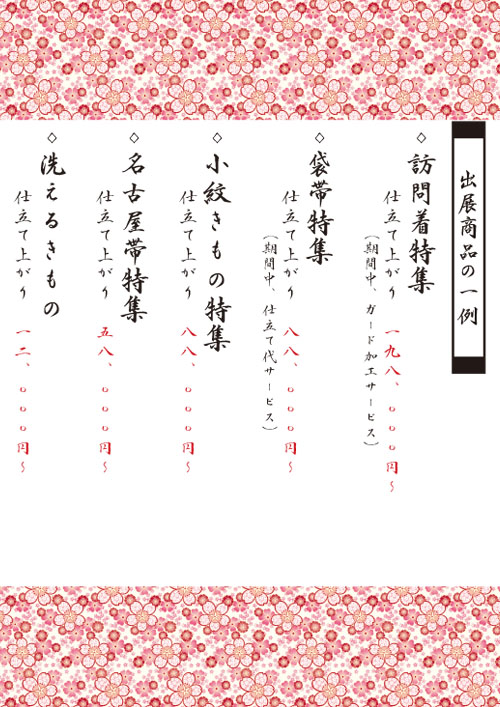 出展商品の一例
◇訪問着特集
仕立て上がり 一九八、〇〇〇円~
(期間中、ガード加工サービス)
◇袋帯特集
仕立て上がり 八八、〇〇〇円~
(期間中、仕立て代サービス)
◇小紋きもの特集
仕立て上がり 八八、〇〇〇円~
◇名古屋帯特集
仕立て上がり 五八、〇〇〇円~
◇洗えるきもの
仕立て上がり 一二、〇〇〇円~